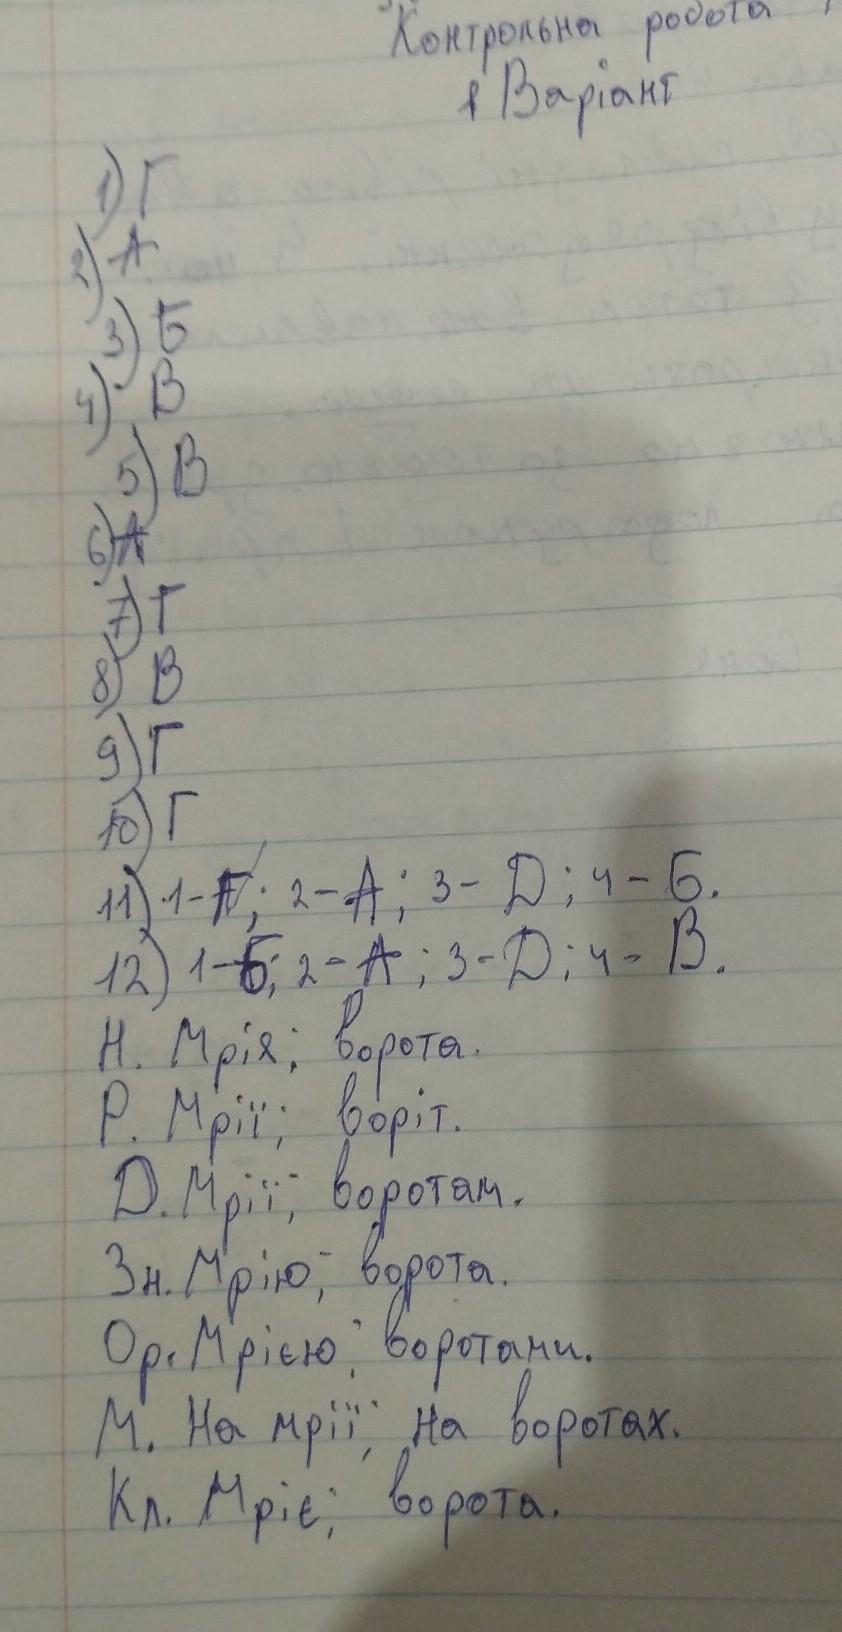 Контрольна робота
1 Варіант
1) Г
2) А
3) Б
4) В
5) В
6) А
7) Г
8) В
9) Г
10) Г
11) 1-Г; 2-А; 3-D; 4-Б.
12) 1-Б; 2-А; 3-D; 4-В.
Н. Мрія; ворота.
Р. Мрії; воріт.
D. Мрії; воротам.
Зн. Мрію; ворота.
Ор. Мрією; воротами.
М. На мрії; на воротах.
Кл. Мріє; ворота.